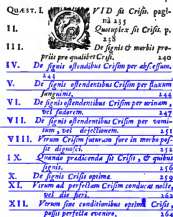 QUÆST. I. QVID sit Crisis. pagi-
na 235
II. Quotuplex sit Crisis. p.
238
III. De signis & morbis pro-
priis pro qualibet Crisi. 240
IV. De signis ostendentibus Crisim per abscessum,
243
V. De signis ostendentibus Crisim per fluxum
sanguinis, 244
VI. De signis ostendentibus Crisim per urinam,
vel sudorem. 247
VII. De signis ostendentibus Crisim per vomi-
tum, vel dejectionem. 251
VIII. Verum Crisim futuram fore in morbo pos-
sit dignosci. 252
IX. Quando prædicenda sit Crisis, & quibus
signis. 256
X. De signis Crisis optimæ. 259
XI. Verum ad perfectam Crisim conducas nocte,
vel die fieri. 262
XII. Verum sine conditionibus optimæ Crisis,
possit perfecta evenire. 264